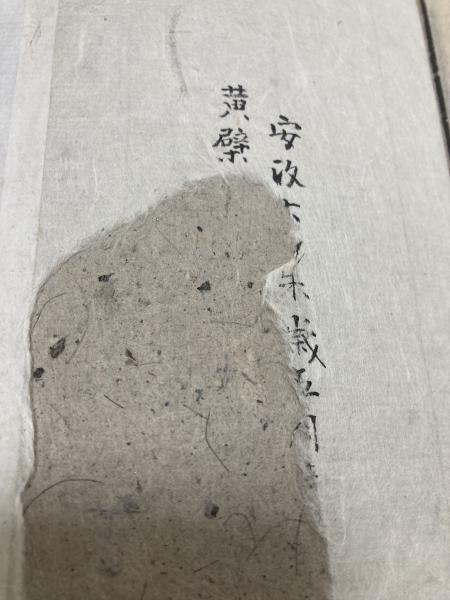 安政六 未歳五月
黄檗